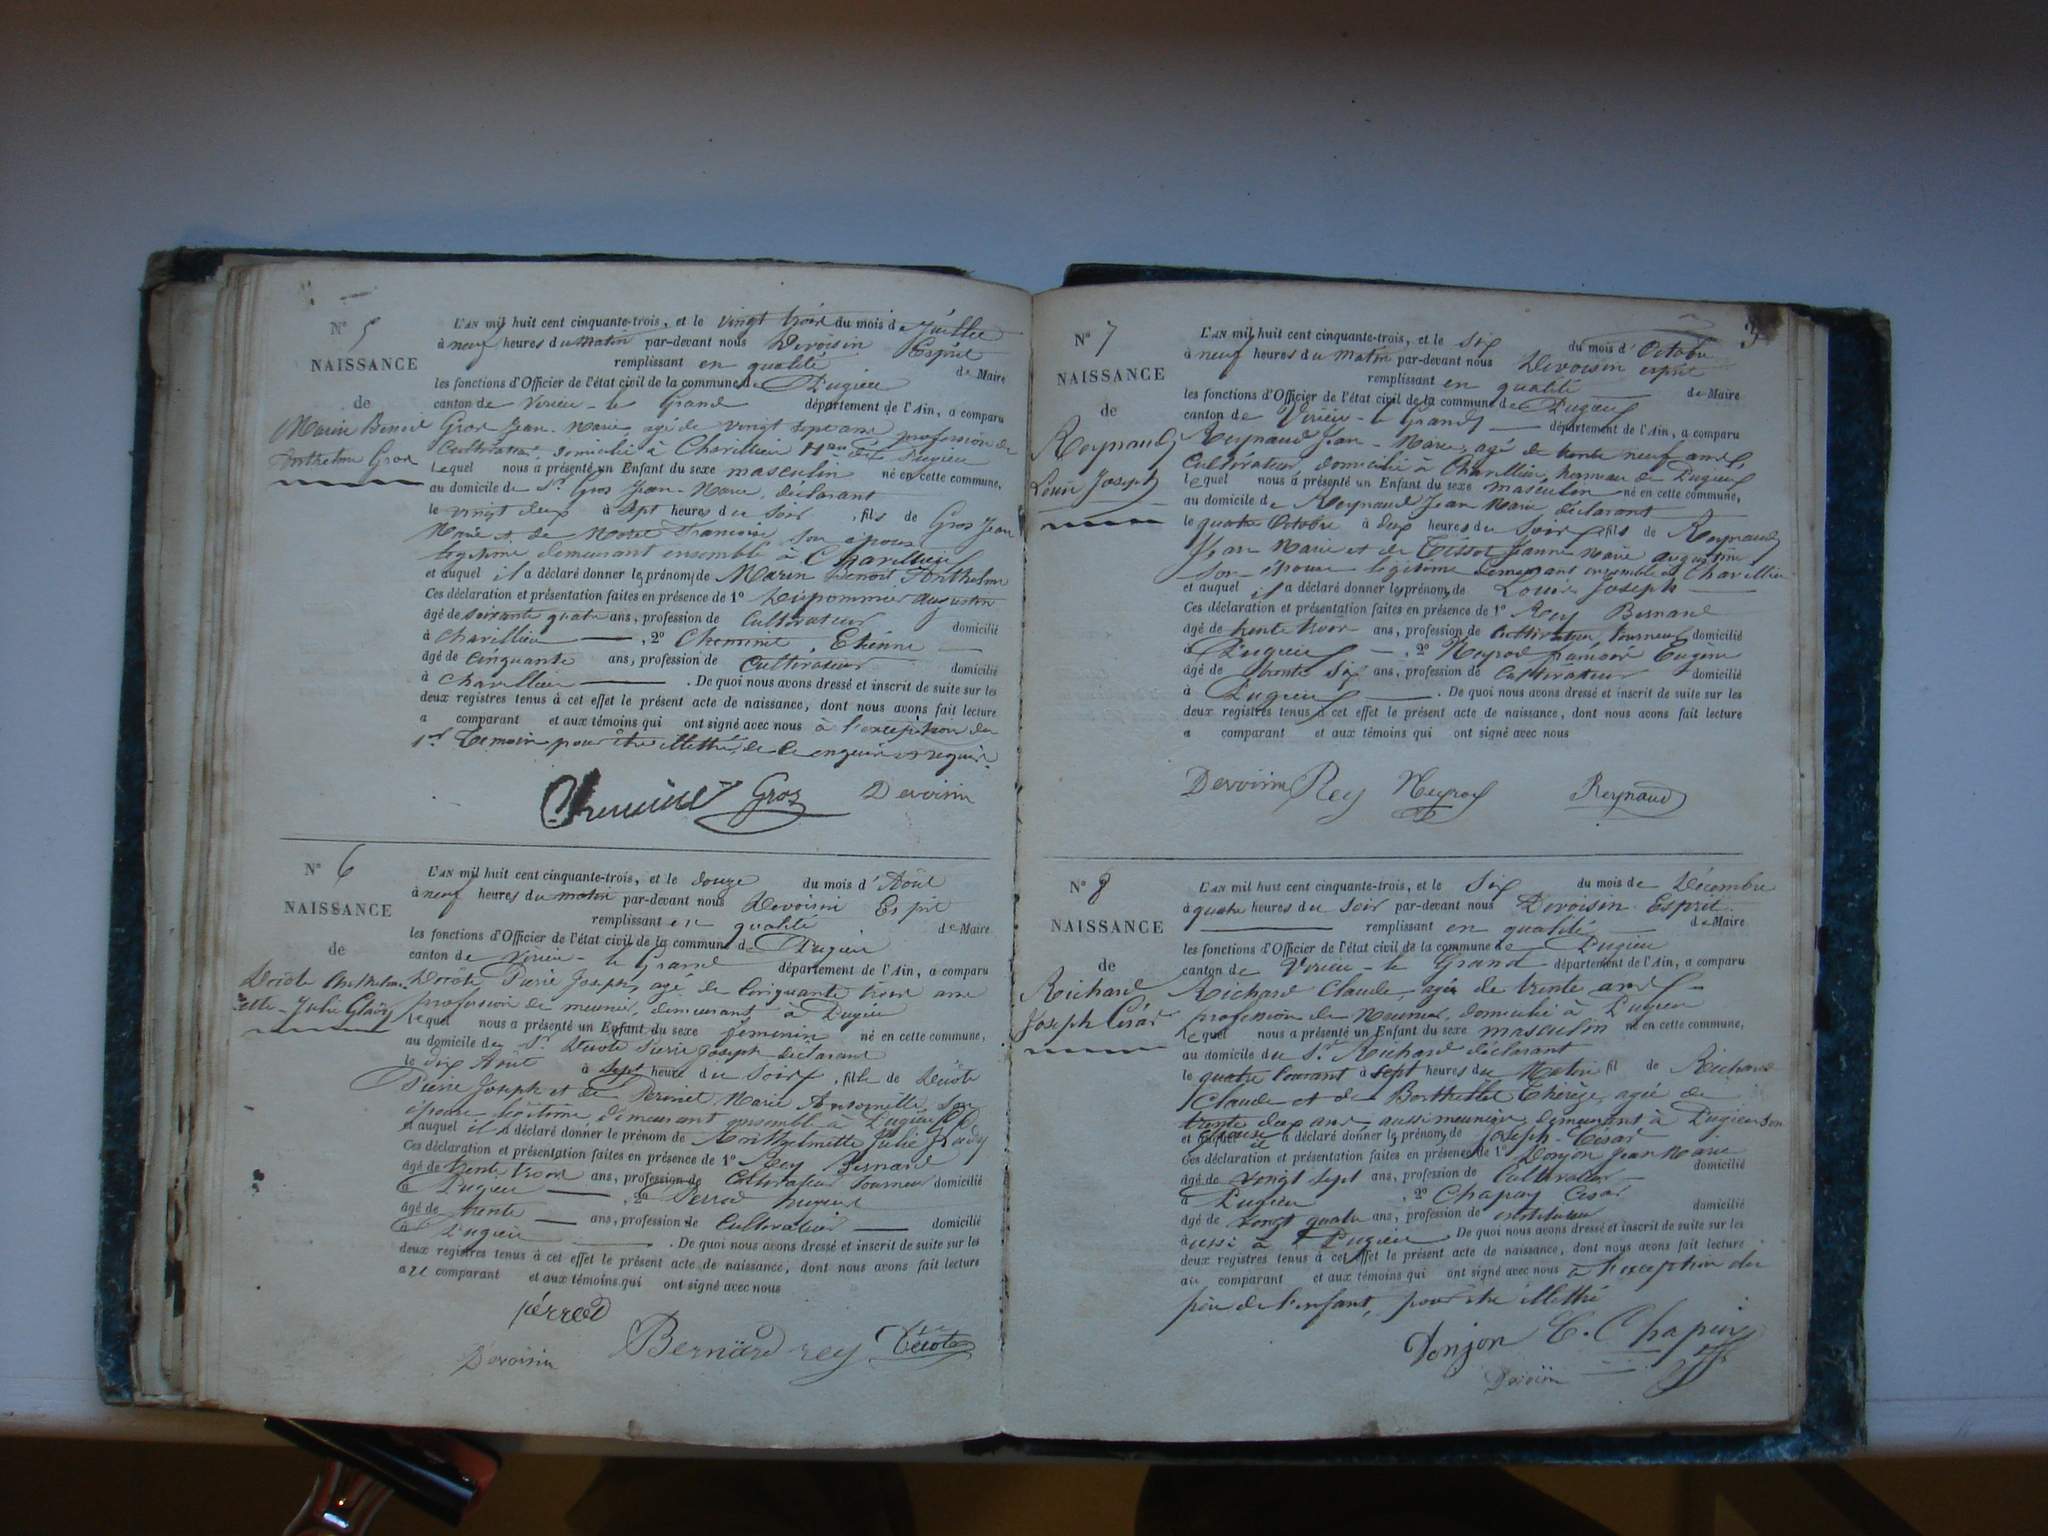 N° 5
NAISSANCE
de
Marin Benoit
Anthelme Gros
L'AN mil huit cent cinquante-trois, et le vingt trois du mois de Juillet
à neuf heures du matin par-devant nous Devoisin Esprit
remplissant en qualité de Maire
les fonctions d'Officier de l'état civil de la commune de Pugieu
canton de Virieu-le Grand département de l'Ain, a comparu
Gros Jean-Marie agé de vingt sept ans profession de
Cultivateur, domicilié à Charillieu Pugieu
Lequel nous a présenté un Enfant du sexe masculin né en cette commune,
au domicile de Sr. Gros Jean-Marie, déclarant
le vingt deux à sept heures du soir, fils de Gros Jean
Marie et de Françoise son épouse
légitime demeurant ensemble à Charillieu
et auquel il a déclaré donner les prénoms de Marin Benoit Anthelme
Ces déclaration et présentation faites en présence de 1° Dupommier Augustin
âgé de soixante quatre ans, profession de Cultivateur domicilié
à Charillieu, 2° Cheminé, Etienne
âgé de cinquante ans, profession de Cultivateur domicilié
à Charillieu. De quoi nous avons dressé et inscrit de suite sur les
deux registres tenus à cet effet le présent acte de naissance, dont nous avons fait lecture
a comparant et aux témoins qui ont signé avec nous à l'exception du
1er témoin pour être illettré, de ce enquis et requis.
Cheminé Gros Devoisin
N° 6
NAISSANCE
de
Décôte Anthelm-
ette-Julie Glady
L'AN mil huit cent cinquante-trois, et le douze du mois d'Août
à neuf heures du matin par-devant nous Devoisin Esprit
remplissant en qualité de Maire
les fonctions d'Officier de l'état civil de la commune de Pugieu
canton de Virieu-le Grand département de l'Ain, a comparu
Décôte Pierre Joseph, agé de Cinquante trois ans
profession de meunier, demeurant à Pugieu
Lequel nous a présenté un Enfant du sexe féminin né en cette commune,
au domicile de Sr. Décôte Pierre Joseph déclarant
le dix Août à sept heure du Soir, fille de Décôte
Pierre Joseph et de Perinet Marie Antoinette son
épouse légitime demeurant ensemble à Pugieu
et auquel il a déclaré donner le prénom de Anthelmette Julie Glady
Ces déclaration et présentation faites en présence de 1° Rey Bernard
âgé de trente trois ans, profession de Cultivateur Tourneur domicilié
à Pugieu, 2° Perrod
âgé de trente ans, profession de Cultivateur domicilié
à Pugieu. De quoi nous avons dressé et inscrit de suite sur les
deux registres tenus à cet effet le présent acte de naissance, dont nous avons fait lecture
au comparant et aux témoins qui ont signé avec nous
pérrod
Devoisin Bernard rey Décote
3
N° 7
NAISSANCE
de
Reynaud
Louis Joseph
L'AN mil huit cent cinquante-trois, et le Six du mois d'Octobre
à neuf heures du matin par-devant nous Devoisin esprit
remplissant en qualité de Maire
les fonctions d'Officier de l'état civil de la commune de Pugieu
canton de Virieu-le Grand département de l'Ain, a comparu
Reynaud Jean-Marie, agé de trente neuf ans
Cultivateur, domicilié à Charillieu, hameau de Pugieu
Lequel nous a présenté un Enfant du sexe masculin né en cette commune,
au domicile de Reynaud Jean Marie déclarant
le quatre Octobre à deux heures du Soir fils de Reynaud
Jean Marie et de Tissot Jeanne Marie augustine
Son Epouse légitime demeurant ensemble à Charillieu
et auquel il a déclaré donner les prénoms de Louis Joseph
Ces déclaration et présentation faites en présence de 1° Rey Bernard
âgé de trente trois ans, profession de Cultivateur, tourneur domicilié
à Pugieu, 2° Neyrod françois Eugène
âgé de trente Six ans, profession de Cultivateur domicilié
à Pugieu. De quoi nous avons dressé et inscrit de suite sur les
deux registres tenus à cet effet le présent acte de naissance, dont nous avons fait lecture
a comparant et aux témoins qui ont signé avec nous
Devoisin Rey Neyrod Reynaud
N° 8
NAISSANCE
de
Richard
Joseph César
L'AN mil huit cent cinquante-trois, et le Six du mois de Décembre
à quatre heures du Soir par-devant nous Devoisin Esprit
remplissant en qualité de Maire
les fonctions d'Officier de l'état civil de la commune de Pugieu
canton de Virieu-le Grand département de l'Ain, a comparu
Richard Claude, agé de trente ans
profession de Meunier, domicilié à Pugieu
Lequel nous a présenté un Enfant du sexe masculin né en cette commune,
au domicile du Sr. Richard déclarant
le quatre Courant à sept heures du Matin fil de Richard
Claude et de Berthellet Thérèze, agée de
trente deux ans aussi meunière, demeurant à Pugieu Son
Epouse
et auquel il a déclaré donner les prénoms de Joseph-César
Ces déclaration et présentation faites en présence de 1° Donjon Jean Marie
âgé de vingt sept ans, profession de Cultivateur domicilié
à Pugieu, 2° Chapuy César
âgé de vingt quatre ans, profession de instituteur domicilié
aussi à Pugieu De quoi nous avons dressé et inscrit de suite sur les
deux registres tenus à cet effet le présent acte de naissance, dont nous avons fait lecture
au comparant et aux témoins qui ont signé avec nous à l'exception du
père de l'enfant, pour être illettré
Donjon C. Chapuy
Devoisin